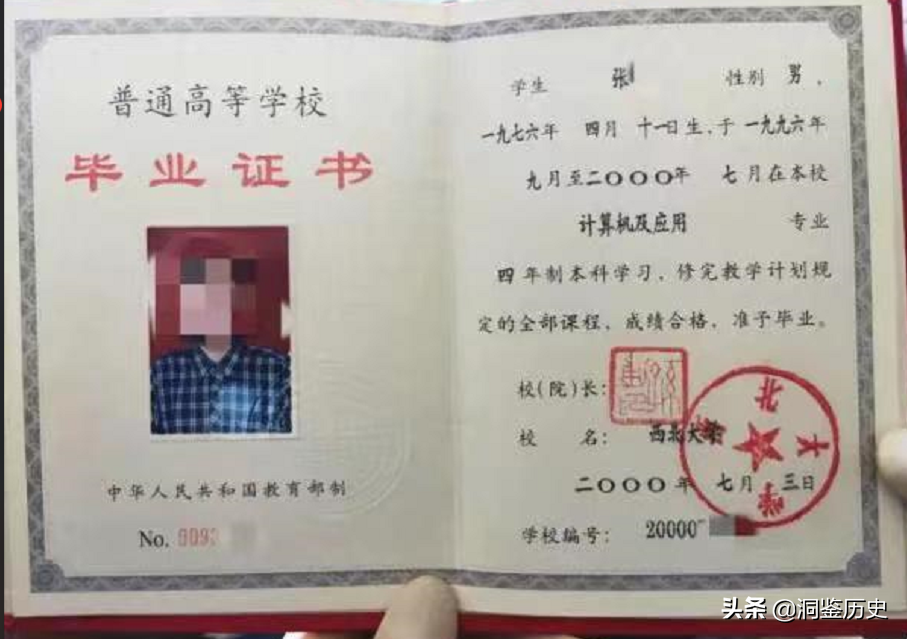 普通高等学校
毕业证书
中华人民共和国教育部制
No. 9092
学生 张 性别 男，
一九七六年 四月 十一日生，于一九九六年
九月至二〇〇〇年 七月在本校
计算机及应用 专业
四年制本科学习，修完教学计划规
定的全部课程，成绩合格，准予毕业。
校(院)长：
校 名： 西北大学
二〇〇〇年 七月 三日
学校编号： 20000
头条 @洞鉴历史